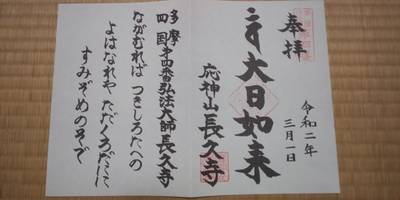 奉拝
大日如来
応神山 長久寺
令和二年
三月一日
多摩
四国
第四番弘法大師長久寺
ながむれば つきしろたへの
よはなれや ただくろだにに
すみぞめのそで